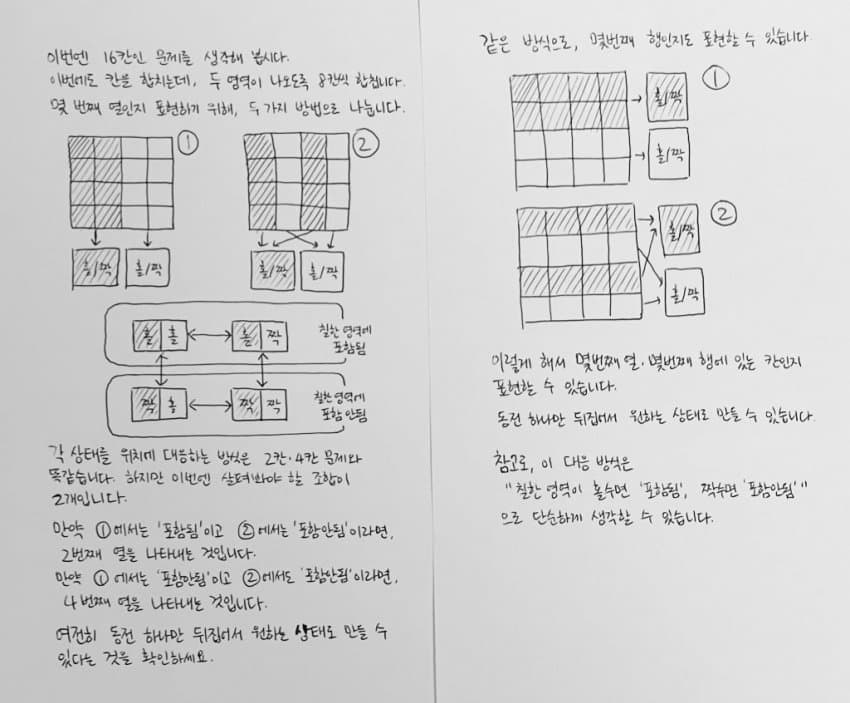 이번엔 16칸인 문제를 생각해 봅시다.
이번에도 칸을 합치는데, 두 영역이 나오도록 8칸씩 합칩니다.
몇 번째 열인지 표현하기 위해, 두 가지 방법으로 나눕니다.
① ②
홀/짝 홀/짝 홀/짝 홀/짝
홀 홀 홀 짝 칠한 영역에
포함됨
짝 홀 짝 짝 칠한 영역에
포함 안됨
각 상태를 위치에 대응하는 방식은 2칸·4칸 문제와
똑같습니다. 하지만 이번엔 살펴봐야 할 조합이
2개입니다.
만약 ①에서는 '포함됨'이고 ②에서는 '포함안됨'이라면,
2번째 열을 나타내는 것입니다.
만약 ①에서는 '포함안됨'이고 ②에서도 '포함안됨'이라면,
4번째 열을 나타내는 것입니다.
여전히 동전 하나만 뒤집어서 원하는 상태로 만들 수
있다는 것을 확인하세요.
같은 방식으로, 몇번째 행인지도 표현할 수 있습니다
①
홀/짝
홀/짝
②
홀/짝
홀/짝
이렇게 해서 몇번째 열·몇번째 행에 있는 칸인지
표현할 수 있습니다.
동전 하나만 뒤집어서 원하는 상태로 만들 수 있습니다.
참고로, 이 대응 방식은
"칠한 영역이 홀수면 '포함됨', 짝수면 '포함안됨'"
으로 단순하게 생각할 수 있습니다.